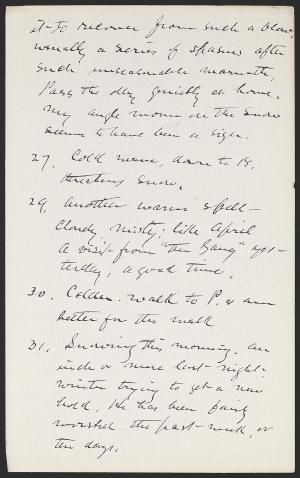 it to recover from such a blow.
usually a series of spasms after
such unseasonable warmth.
Pass the day quietly at home.
my angle worm on the snow
seems to have been a sign.
27, Cold wave, down to 18.
threatens snow.
29, Another warm spell -
Cloudy, misty; like April
A visit from "the Gang" yes-
terday, a good time.
30. Colder. walk to P. &  am
better for the walk
31. Snowing this morning, an
inch or more last night -
winter trying to get a new
hold, He has been fairly
worsted the past week, or
ten days.